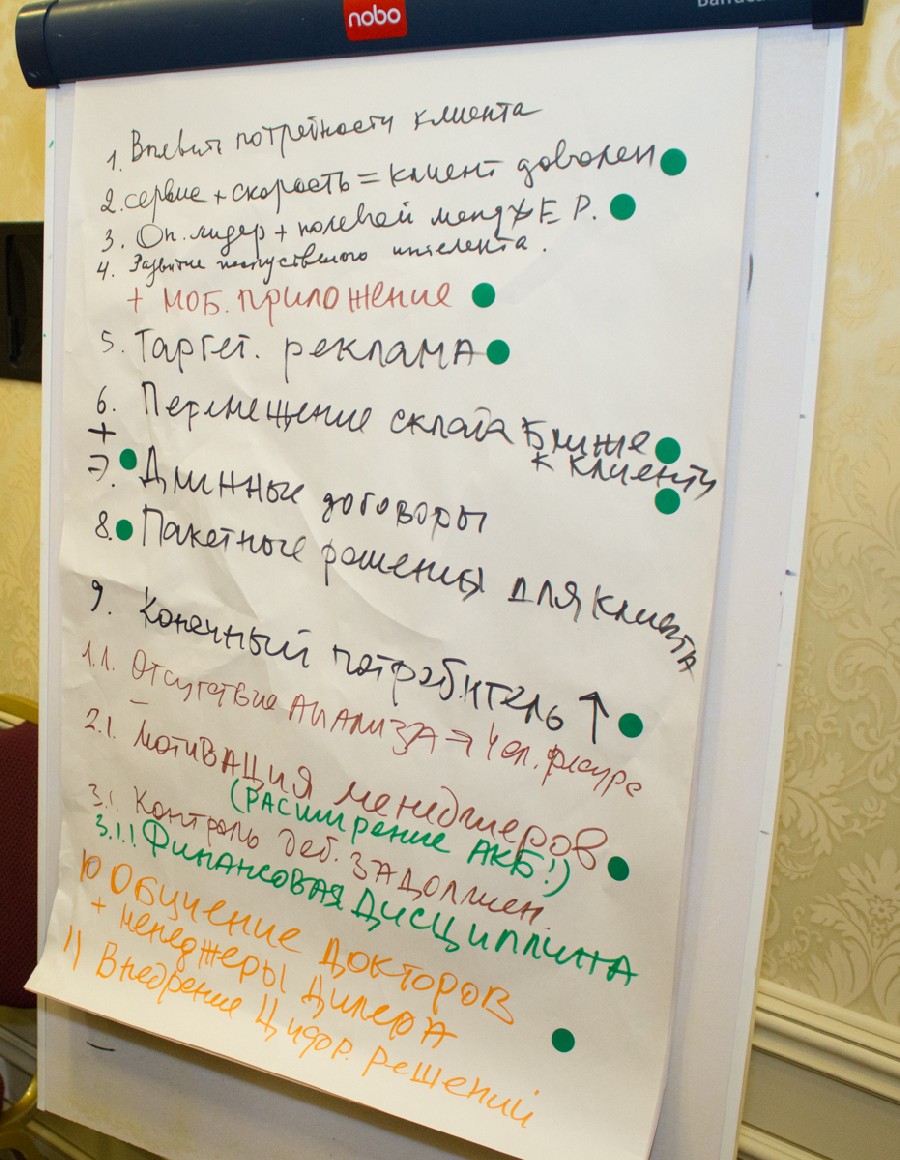 nobo
1. Выевить потребности клиента
2. сервис + скорость = клиент доволен
3. Оп. лидер + полевой менджЕР.
4. Развитие исскуственого интелекта.
+ моб. приложение
5. Таргет. реклама
6. Перемещение склада Ближе
к клиенту
+
7. Длинные договоры
8. Пакетные решения для клиента
9. Конечный потребитель ↑
1.1. Отсутствие АНАЛИЗА → чел. ресурс
2.1. Мотивация менеджеров
(РАСШИРЕНИЕ АКБ!)
3.1. Контроль деб. задолжен
3.1.1 Финансовая Дисциплина
10 Обучение докторов
+ менеджеры дилера
11 Внедрение Цифр. решений